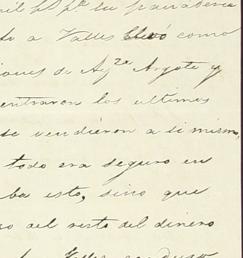 mil ps pa tu panaderia
to a Valles llevó como
iones de Agte Argote y
entraron los ultimos
se vendieron a ti mismo,
todo era seguro en
ba esto, sino que
o del resto del dinero